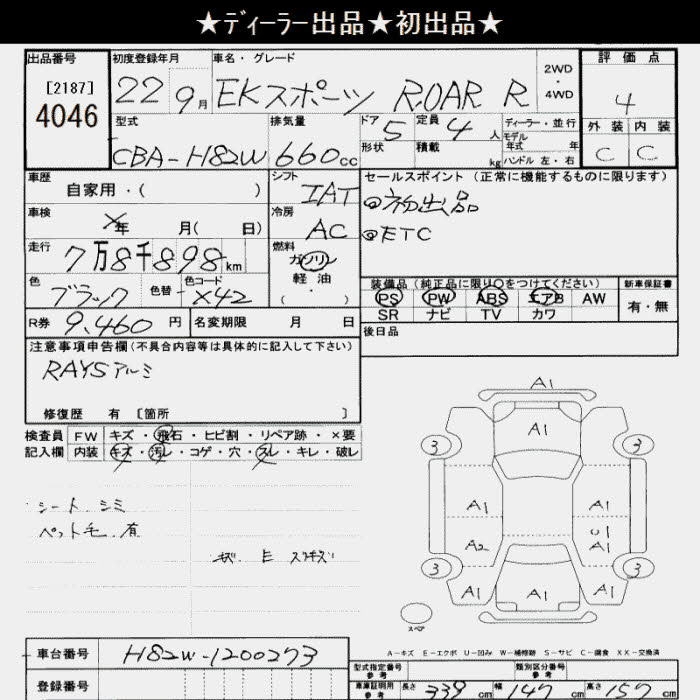 ★ディーラー出品★初出品★
出品番号
[2187]
4046
初度登録年月
22 9月
車名・グレード
EKスポーツ ROAR R
2WD
・
4WD
評価点
4
外装 内装
C C
型式
CBA-H82W
排気量
660cc
ドア 5
形状
定員 4人
積載 kg
ディーラー・並行
モデル
年式 年
ハンドル 左・右
車歴
自家用・( )
シフト
IAT
セールスポイント(正常に機能するものに限ります)
◎初出品
◎ETC
車検
×年 月( 日)
冷房
AC
走行
7万8千898km
燃料
ガソリン
軽油
( ・ )
色
ブラック
色替
色コード
X42
装備品(純正品に限り○をつけてください)
PS PW ABS エアB AW
SR ナビ TV カワ
新車保証書
有・無
R券 9,460円
名変期限 月 日
後日品
注意事項申告欄(不具合内容等は具体的に記入して下さい)
RAYSアルミ
修復歴 有 [箇所 ]
検査員
記入欄
FW キズ・飛石・ヒビ割・リペア跡・×要
内装 キズ・汚レ・コゲ・穴・スレ・キレ・破レ
シート シミ
ペット毛 有
A1
3 A1 3
A1 A1
U1
A2 A1
3 3
A1 A1 A1
スペア
A-キズ E-エクボ U-凹み W-補修跡 S-サビ C-腐食 XX-交換済
車台番号 H82W-1200273
登録番号
型式指定番号
参考
類別区分番号
参考
車庫証明用
参考
長さ 339cm 幅 147cm 高さ 157cm